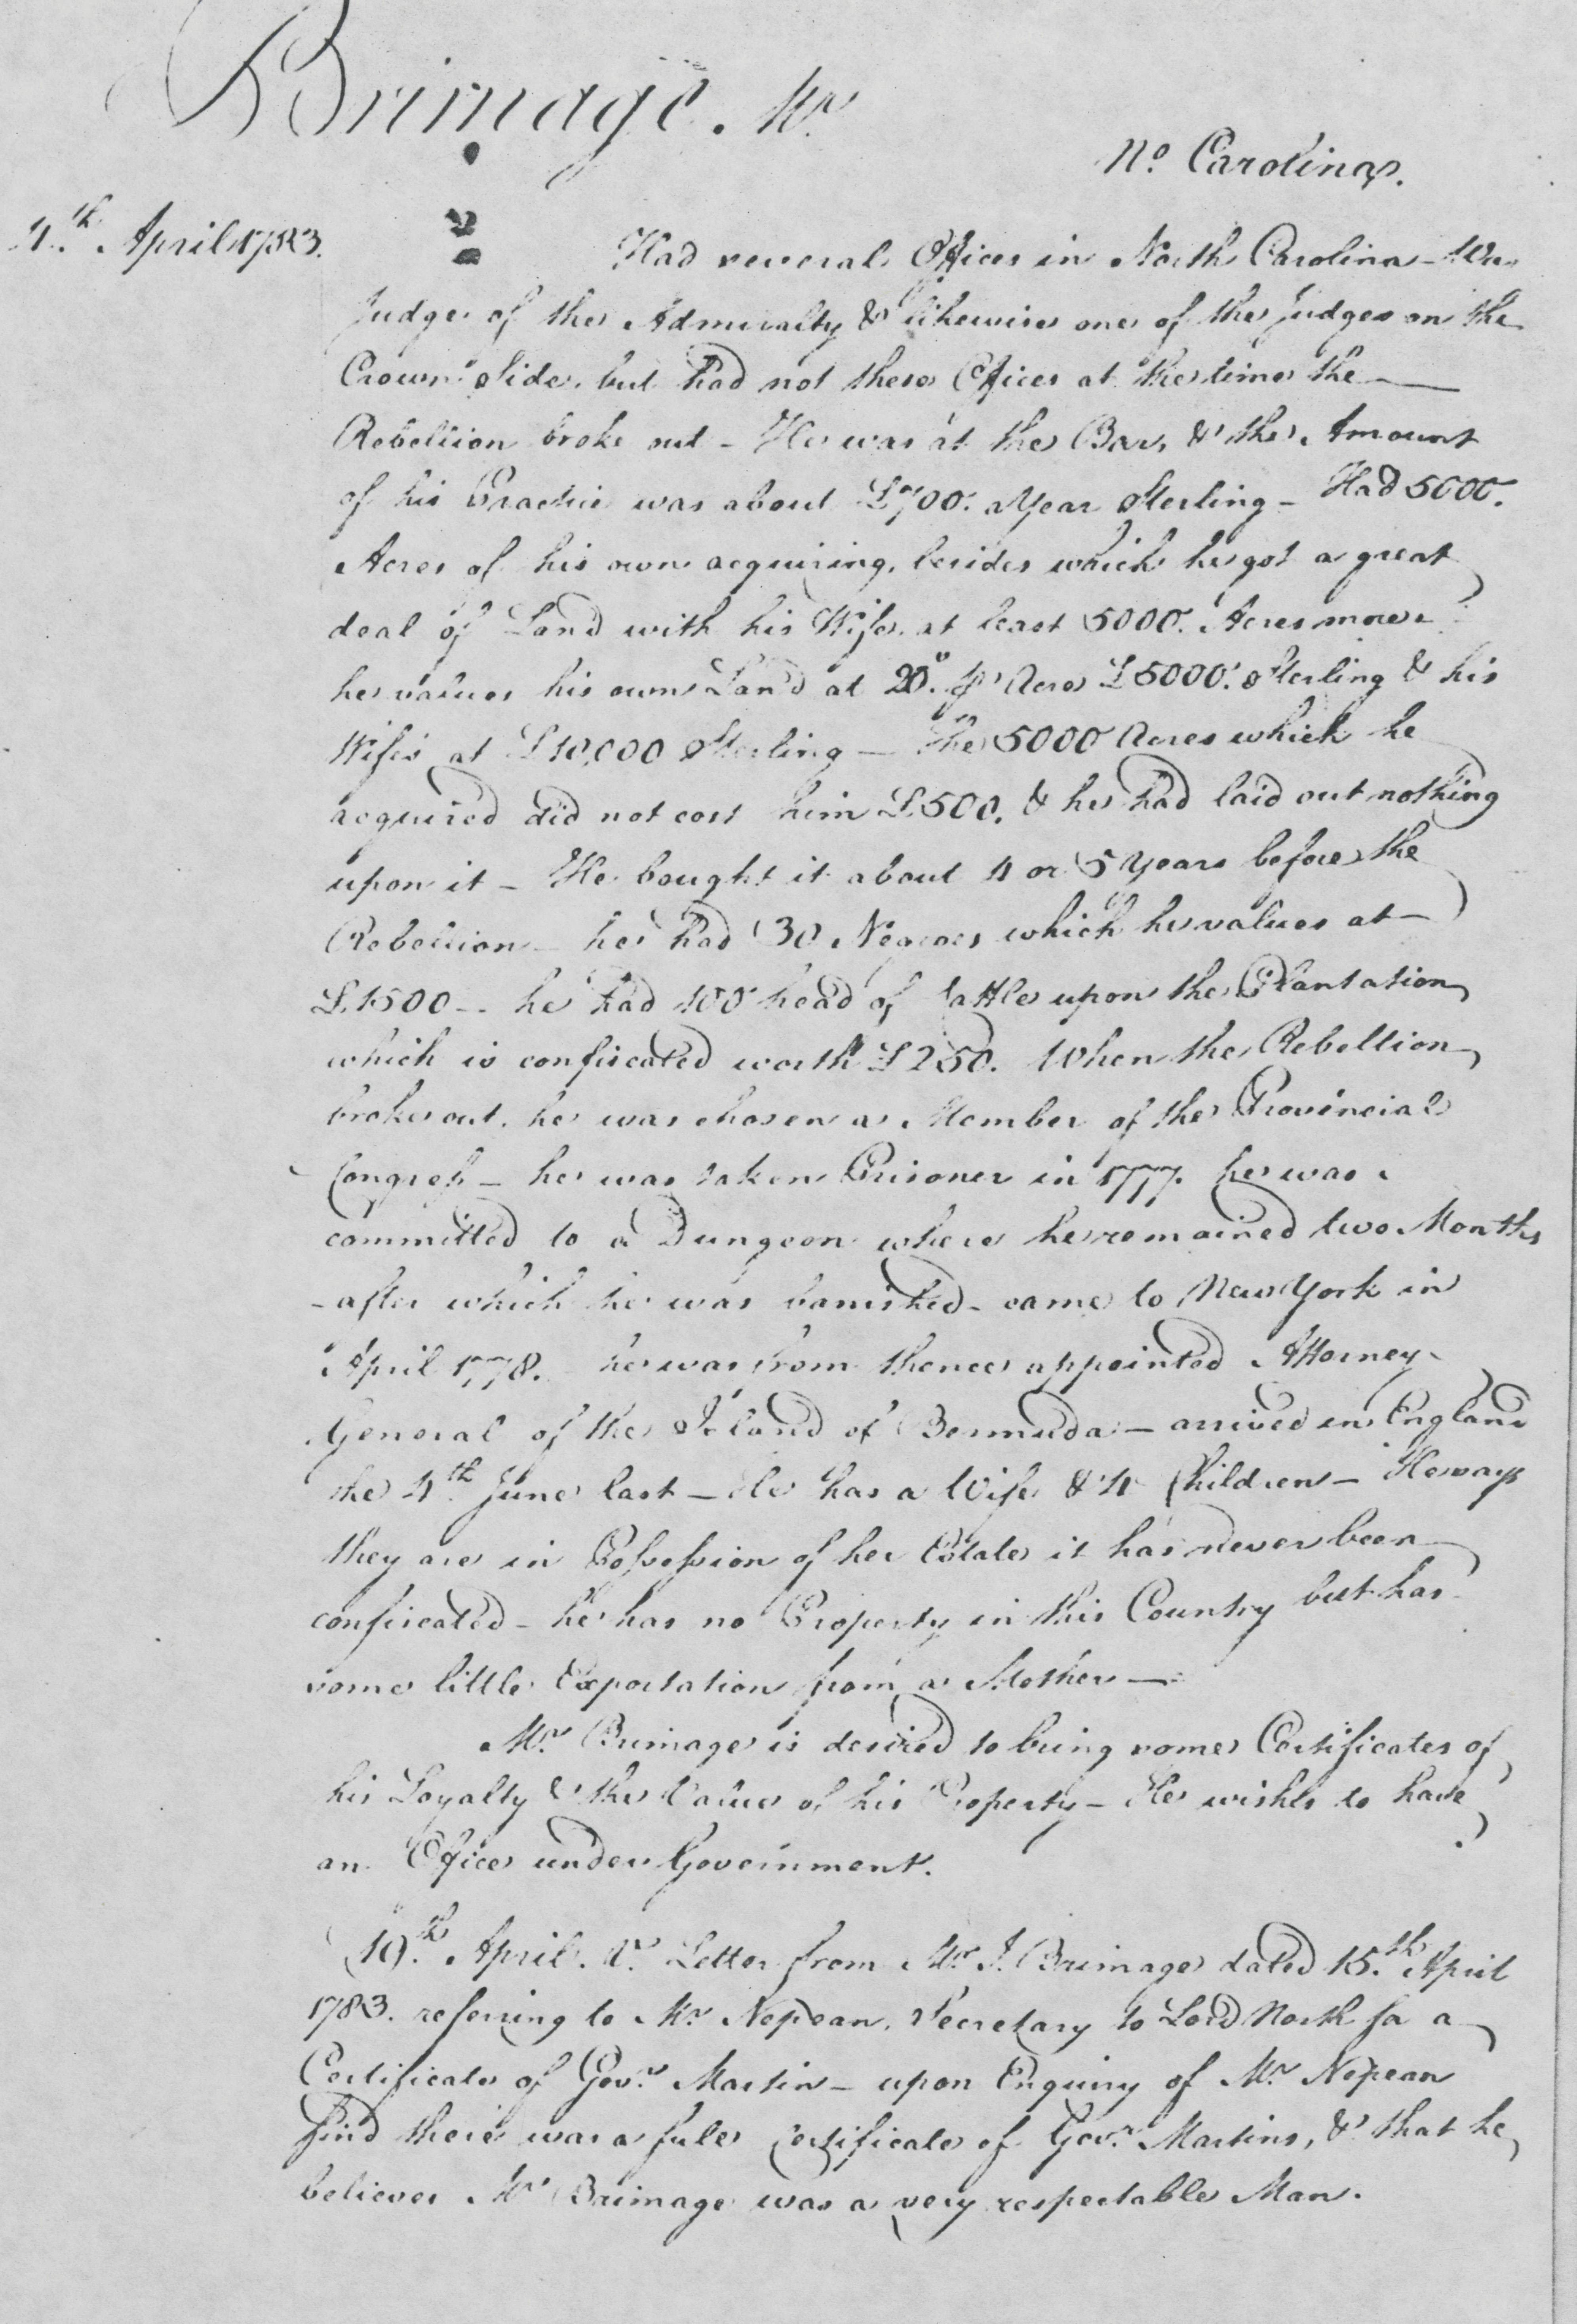 Brimage. Mr
No. Carolina.
4th. April 1783.
Had several Offices in North Carolina - Was
Judge of the Admiralty & likewise one of the Judges on the
Crown Side, but had not these Offices at the time the
Rebellion broke out - He was at the Bar, & the Amount
of his Practice was about £700. a Year Sterling - Had 5000.
Acres of his own acquiring, besides which he got a great
deal of Land with his Wife, at least 5000. Acres more
he values his own Land at 20s. pr Acre £5000. Sterling & his
Wifes at £10,000 Sterling - The 5000 Acres which he
acquired did not cost him £500. & he had laid out nothing
upon it - He bought it about 4 or 5 Years before the
Rebellion - he had 30 Negroes which he values at -
£1500 - he had 100 head of Cattle upon the Plantation
which is confiscated worth £250. When the Rebellion
broke out, he was chosen a Member of the Provincial
Congress - he was taken Prisoner in 1777. he was
committed to a Dungeon where he remained two Months
- after which he was banished - came to New York in
April 1778. he was from thence appointed Attorney
General of the Island of Bermuda - arrived in England
the 4th June last - He has a Wife & 4 Children - He says
they are in Possession of her Estate it has never been
confiscated - he has no Property in this Country but has
some little Expectation from a Mother -
Mr. Brimage is desired to bring some Certificates of
his Loyalty & the Value of his Property - He wishes to have
an Office under Government.
19th. April. Letter from Mr. J. Brimage dated 15th. April
1783. referring to Mr. Nepean, Secretary to Lord North for a
Certificate of Govr. Martin - upon Enquiry of Mr. Nepean
find there was a full Certificate of Govr. Martins, & that he
believes Mr Brimage was a very respectable Man.